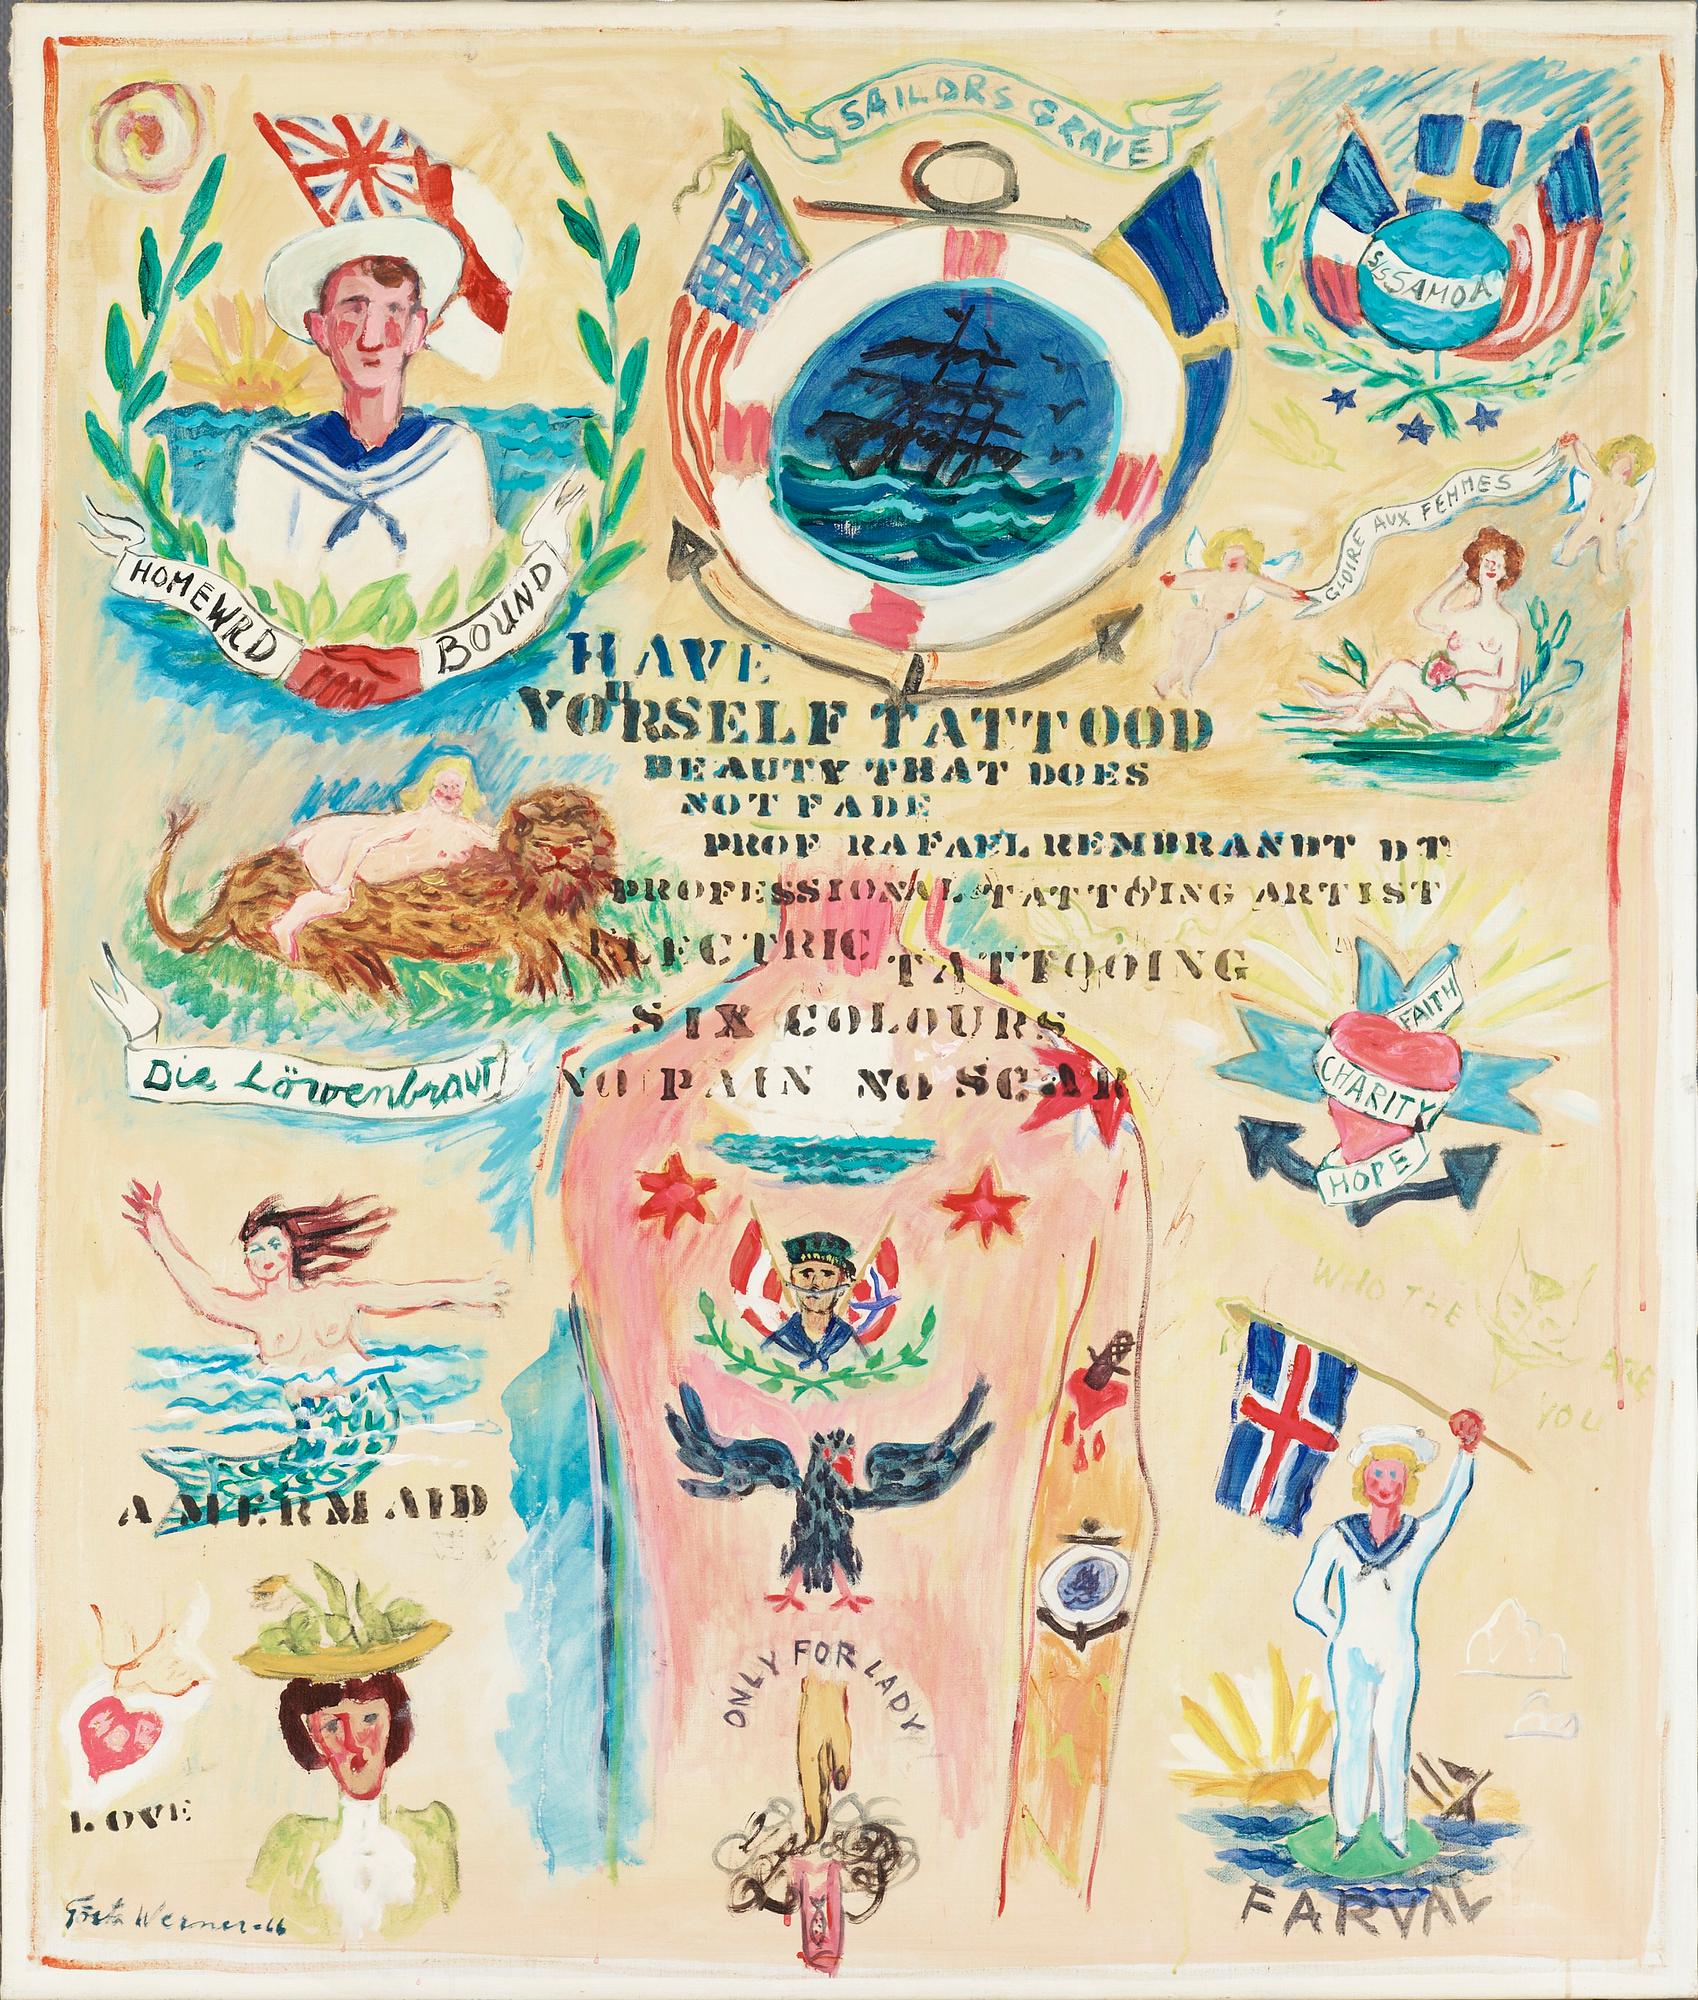 SAILORS GRAVE
S/S SAMOA
GLOIRE AUX FEMMES
HOMEWRD BOUND
HAVE
YOURSELF TATTOOD
BEAUTY THAT DOES
NOT FADE
PROF RAFAEL REMBRANDT DT
PROFESSIONAL TATTOING ARTIST
ELECTRIC TATTOOING
SIX COLOURS
NO PAIN NO SCAR
Die Löwenbraut
FAITH
CHARITY
HOPE
WHO THE
ARE
YOU
A MERMAID
ONLY FOR LADY
LOVE
FARVÄL
Gösta Werner-66